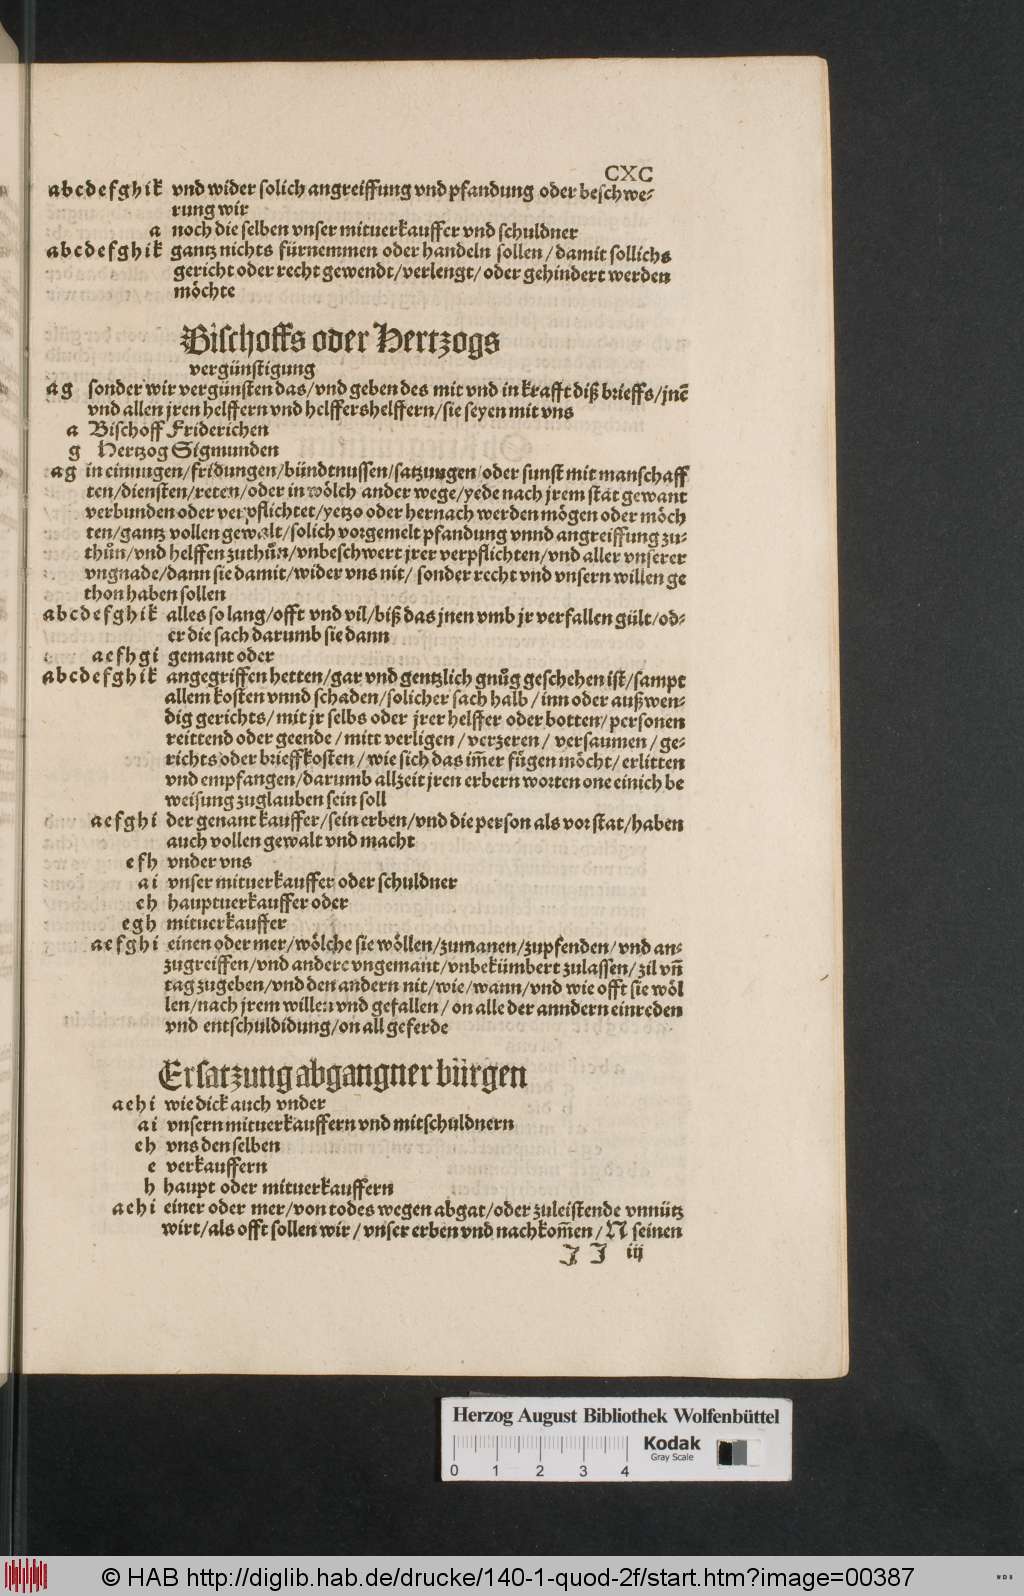 CXC
a b c d e f g h i k vnd wider solich angreiffung vnd pfandung oder beschwe-
rung wir
a noch die selben vnser mituerkauffer vnd schuldner
a b c d e f g h i k gantz nichts fürnemmen oder handeln sollen / damit sollichs
gericht oder recht gewendt/verlengt/ oder gehindert werden
möchte
Bischoffs oder Hertzogs
vergünstigung
a g sonder wir vergünsten das/vnd geben des mit vnd in krafft diß brieffs/jnē
vnd allen jren helffern vnd helffershelffern/sie seyen mit vns
a Bischoff Friderichen
g Hertzog Sigmunden
a g in einungen/fridungen/bündtnussen/satzungen/oder sunst mit manschaff
ten/diensten/reten/oder in wölch ander wege/yede nach jrem stat gewant
verbunden oder verpflichtet/yetzo oder hernach werden mögen oder möch
ten/gantz vollen gewalt/solich vorgemelt pfandung vnnd angreiffung zu-
thůn/vnd helffen zuthůn/vnbeschwert jrer verpflichten/vnd aller vnserer
vngnade/dann sie damit/wider vns nit/ sonder recht vnd vnsern willen ge
thon haben sollen
a b c d e f g h i k alles so lang/offt vnd vil/biß das jnen vmb jr verfallen gült/od-
er die sach darumb sie dann
a e f h g i gemant oder
a b c d e f g h i k angegriffen hetten/gar vnd gentzlich gnůg geschehen ist/sampt
allem kosten vnnd schaden/solicher sach halb / inn oder außwen-
dig gerichts/ mit jr selbs oder jrer helffer oder botten/ personen
reittend oder geende / mitt verligen / verzeren / versaumen / ge-
richts oder brieffkosten / wie sich das im̄er fügen möcht/ erlitten
vnd empfangen/darumb allzeit jren erbern worten one einich be
weisung zuglauben sein soll
a e f g h i der genant kauffer/sein erben/vnd die person als vor stat/haben
auch vollen gewalt vnd macht
e f h vnder vns
a i vnser mituerkauffer oder schuldner
e h hauptuerkauffer oder
e g h mituerkauffer
a e f g h i einen oder mer/wölche sie wöllen/zumanen/zupfenden/ vnd an-
zugreiffen/vnd andere vngemant/vnbekümbert zulassen/ zil vn̄
tag zugeben/vnd den andern nit/wie/wann/vnd wie offt sie wöl
len/nach jrem willen vnd gefallen / on alle der anndern einreden
vnd entschuldidung/on all geferde
Ersatzung abgangner bürgen
a e h i wie dick auch vnder
a i vnsern mituerkauffern vnd mitschuldnern
e h vns den selben
e verkauffern
h haupt oder mituerkauffern
a e h i einer oder mer/von todes wegen abgat/oder zuleistende vnnütz
wirt/als offt sollen wir / vnser erben vnd nachkom̄en / N seinen
J J iij
Herzog August Bibliothek Wolfenbüttel
Kodak
Gray Scale
0 1 2 3 4
© HAB http://diglib.hab.de/drucke/140-1-quod-2f/start.htm?image=00387